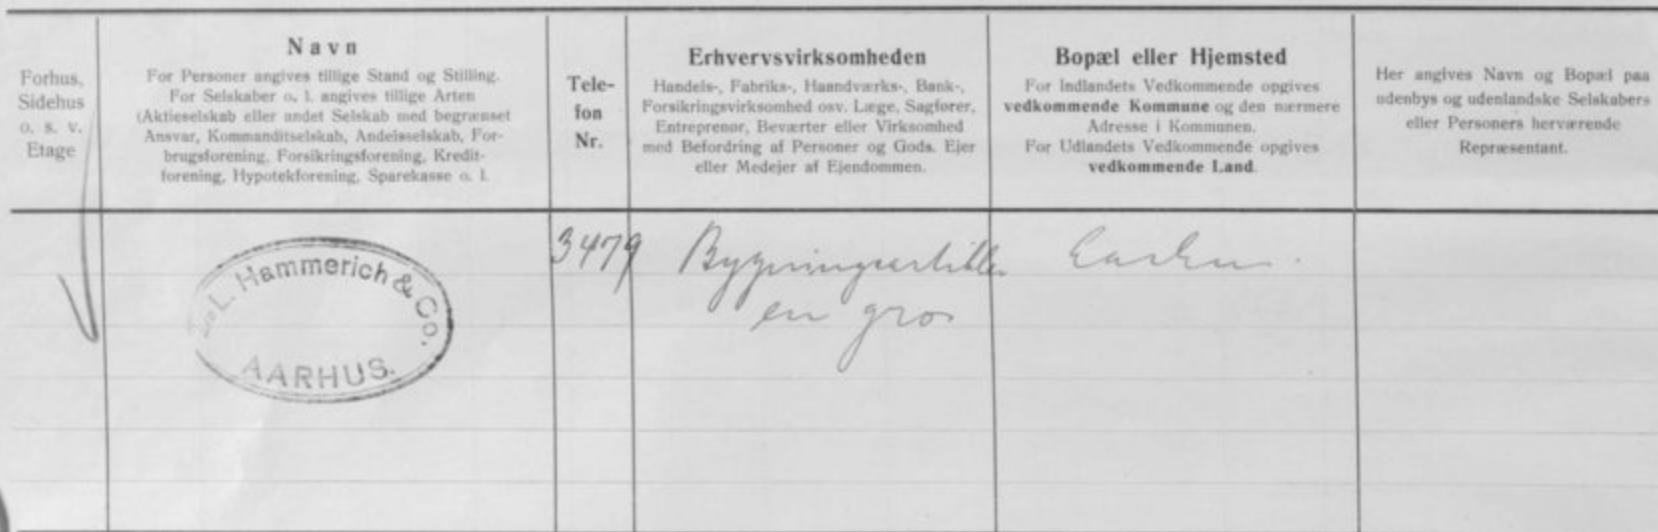 Forhus,
Sidehus
o. s. v.
Etage
Navn
For Personer angives tillige Stand og Stilling.
For Selskaber o. l. angives tillige Arten
(Aktieselskab eller andet Selskab med begrænset
Ansvar, Kommanditselskab, Andelsselskab, For-
brugsforening, Forsikringsforening, Kredit-
forening, Hypotekforening, Sparekasse o. l.
Tele-
fon
Nr.
Erhvervsvirksomheden
Handels-, Fabriks-, Haandværks-, Bank-,
Forsikringsvirksomhed osv. Læge, Sagfører,
Entreprenør, Beværter eller Virksomhed
med Befordring af Personer og Gods. Ejer
eller Medejer af Ejendommen.
Bopæl eller Hjemsted
For Indlandets Vedkommende opgives
vedkommende Kommune og den nærmere
Adresse i Kommunen.
For Udlandets Vedkommende opgives
vedkommende Land.
Her angives Navn og Bopæl paa
udenbys og udenlandske Selskabers
eller Personers herværende
Repræsentant.
L. Hammerich & Co.
AARHUS.
3479
Bygningsartikler
en gros
Aarhus.